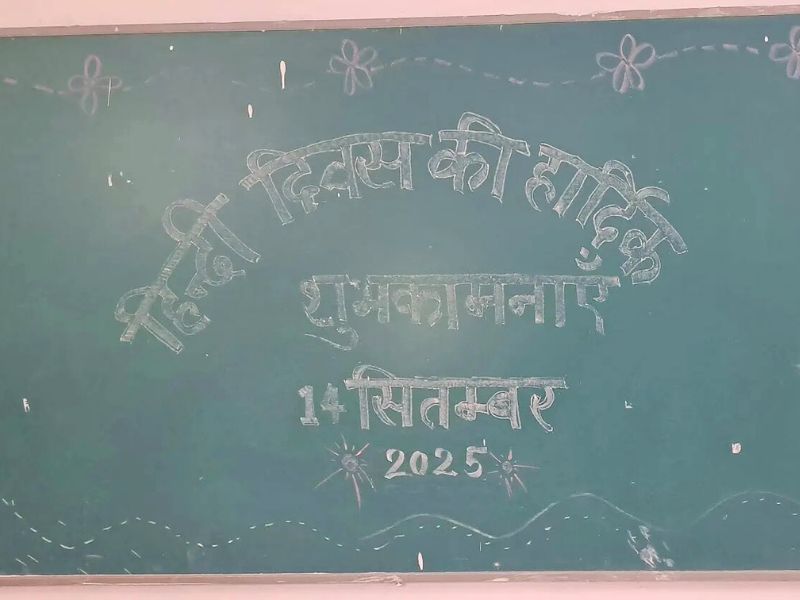 हिन्दी दिवस की हार्दिक
शुभकामनाएँ
14 सितम्बर
2025